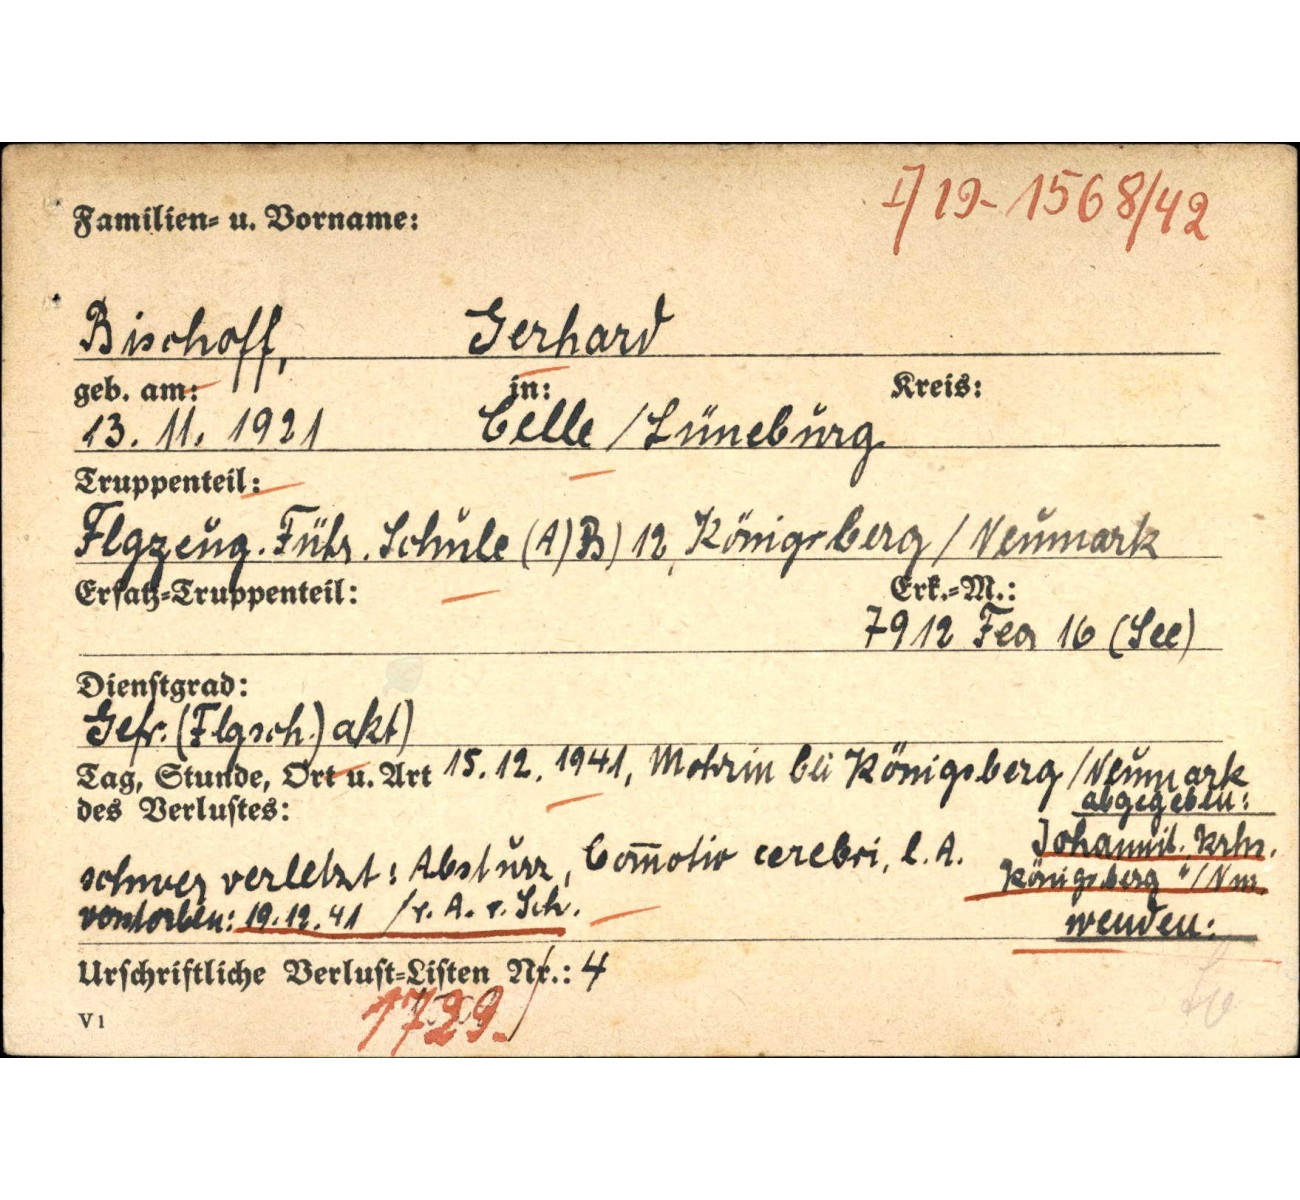 I/19-1568/42
Familien- u. Vorname:
Bischoff, Gerhard
geb. am: in: Kreis:
13. 11. 1921 Celle / Lüneburg.
Truppenteil:
Flgzeug. Führ. Schule (A)B) 12, Königsberg / Neumark
Ersatz-Truppenteil: Erk.-M.:
7912 Fea 16 (See)
Dienstgrad:
Gefr. (Flgsch.) akt)
Tag, Stunde, Ort u. Art 15. 12. 1941, Mohrin bei Königsberg / Neumark
des Verlustes: abgegeben:
schwer verletzt: Absturz, Com̅otio cerebri, l. A. Johannit. Krhs.
Königsberg "/Nm.
verstorben: 19. 12. 41 / r. A. r. Sch. wenden:
Urschriftliche Verlust-Listen Nr.: 4
1729.
V 1